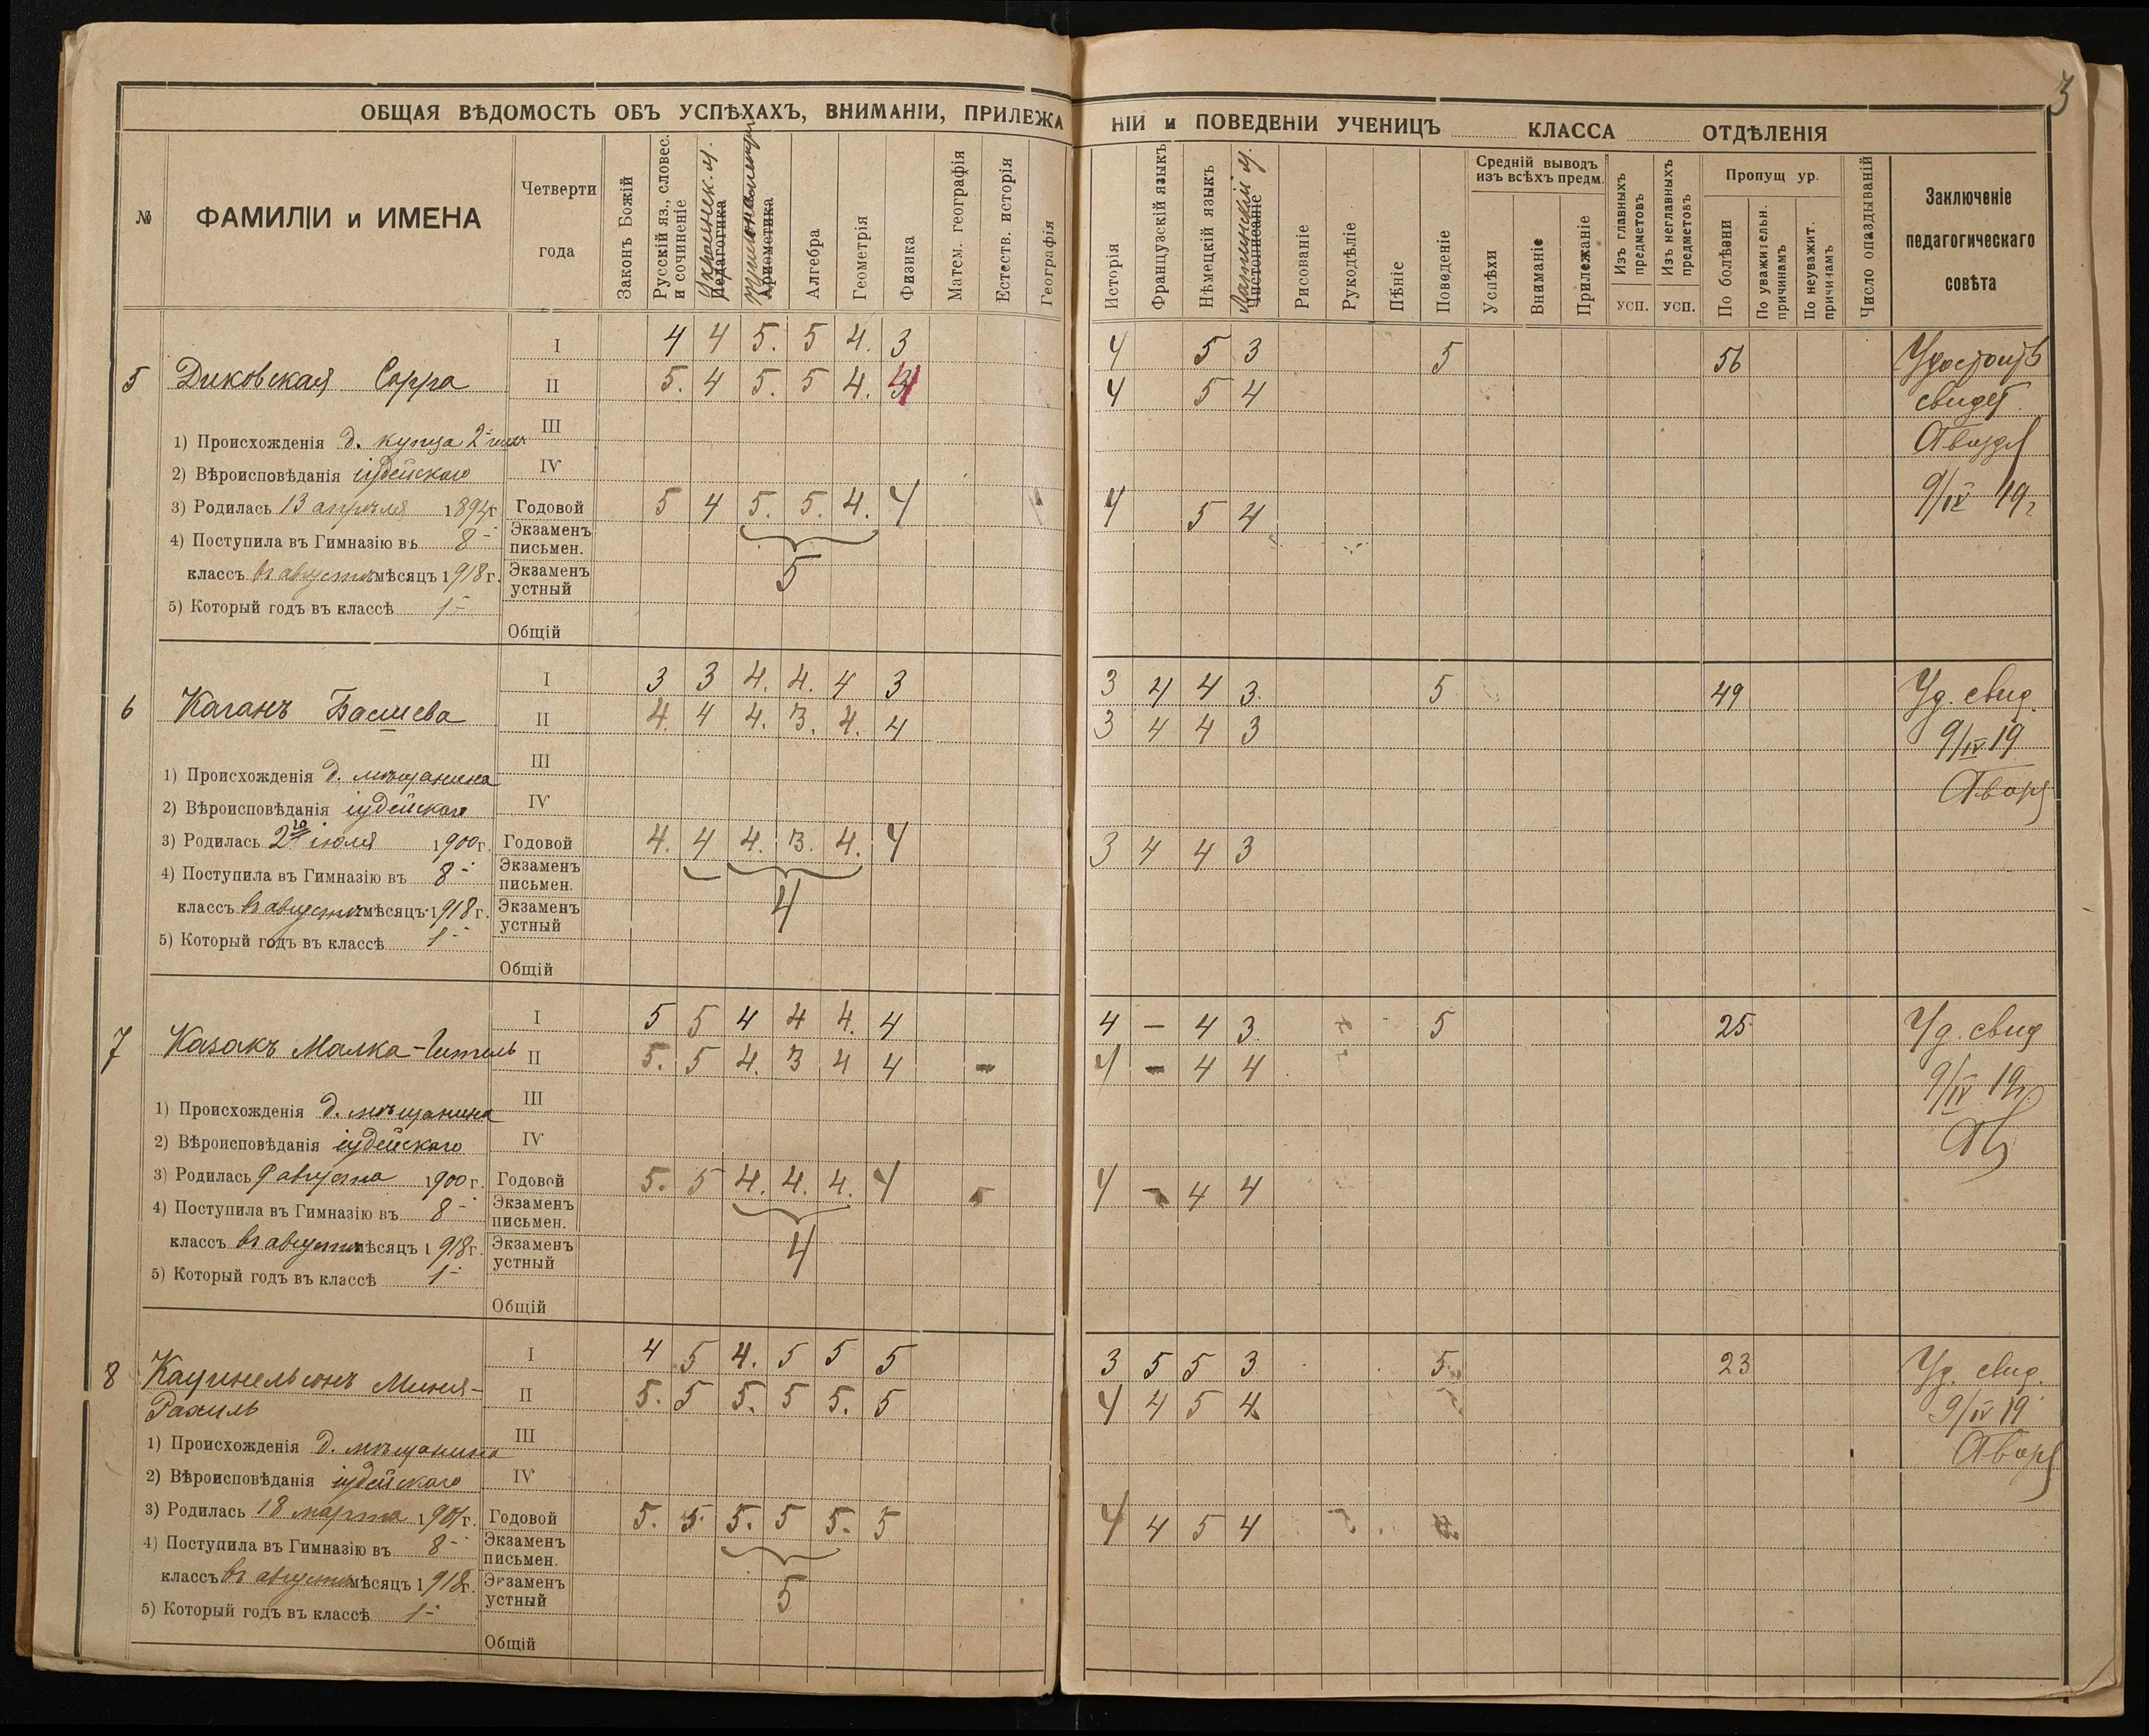 3
ОБЩАЯ ВѢДОМОСТЬ ОБЪ УСПѢХАХЪ, ВНИМАНІИ, ПРИЛЕЖАНІИ и ПОВЕДЕНІИ УЧЕНИЦЪ КЛАССА ОТДѢЛЕНІЯ
№
ФАМИЛІИ и ИМЕНА
Четверти года
Законъ Божій
Русскій яз., словес. и сочиненіе
Педагогика
Ариѳметика
Алгебра
Геометрія
Физика
Матем. географія
Естеств. исторія
Географія
Исторія
Французскій языкъ
Нѣмецкій языкъ
Латинскій
Чистописаніе
Рисованіе
Рукодѣліе
Пѣніе
Поведеніе
Средній выводъ изъ всѣхъ предм.
Успѣхи
Вниманіе
Прилежаніе
Изъ главныхъ предметовъ
усп.
Изъ неглавныхъ предметовъ
усп.
Пропущ ур.
По болѣзни
По уважительн. причинамъ
По неуважит. причинамъ
Число опаздываній
Заключеніе педагогическаго совѣта
5 Диковская Сарра
I 4 4 5. 5 4. 3 4 5 3 5 56 Удостоить
II 5. 4 5. 5 4. 4 5 4 свидѣт.
III
1) Происхожденія д. купца 2
2) Вѣроисповѣданія іудейскаго
IV
3) Родилась 13 апрѣля 1894г.
Годовой 5 4 5. 5. 4. 4 4 5 4 9/IV 19г
4) Поступила въ Гимназію въ 8
Экзаменъ письмен.
5
классъ въ августѣ мѣсяцъ 1918г.
Экзаменъ устный
5) Который годъ въ классѣ 1
Общій
6 Каганъ Басшева
I 3 3 4. 4. 4 3 3 4 4 3. 5 49 Уд. свид.
II 4. 4 4. 3. 4. 4 3 4 4 3 9/IV 19
III
1) Происхожденія д. мѣщанина
2) Вѣроисповѣданія іудейскаго
IV
3) Родилась 2го іюля 1900г.
Годовой 4. 4 4. 3. 4. 4 3 4 4 3
4) Поступила въ Гимназію въ 8
Экзаменъ письмен.
4
классъ въ августѣ мѣсяцъ 1918г.
Экзаменъ устный
5) Который годъ въ классѣ 1
Общій
7 Казакъ Малка-Гитель
I 5 5 4 4 4. 4 4 – 4 3. 5 25 Уд. свид
II 5. 5 4. 3 4 4 4 – 4 4 9/IV 19г.
III
1) Происхожденія д. мѣщанина
2) Вѣроисповѣданія іудейскаго
IV
3) Родилась 9 августа 1900г.
Годовой 5. 5 4. 4. 4. 4 4 – 4 4
4) Поступила въ Гимназію въ 8
Экзаменъ письмен.
4
классъ въ августѣ мѣсяцъ 1918г.
Экзаменъ устный
5) Который годъ въ классѣ 1
Общій
8 Кацинельсонъ Миня-
Рахиль
I 4 5 4. 5 5 5 3 5 5 3 5 23 Уд. свид.
II 5. 5 5. 5 5. 5 4 4 5 4 9/IV 19
III
1) Происхожденія д. мѣщанина
2) Вѣроисповѣданія іудейскаго
IV
3) Родилась 18 марта 1901г.
Годовой 5. 5. 5. 5 5. 5 4 4 5 4
4) Поступила въ Гимназію въ 8
Экзаменъ письмен.
5
классъ въ августѣ мѣсяцъ 1918г.
Экзаменъ устный
5) Который годъ въ классѣ 1
Общій